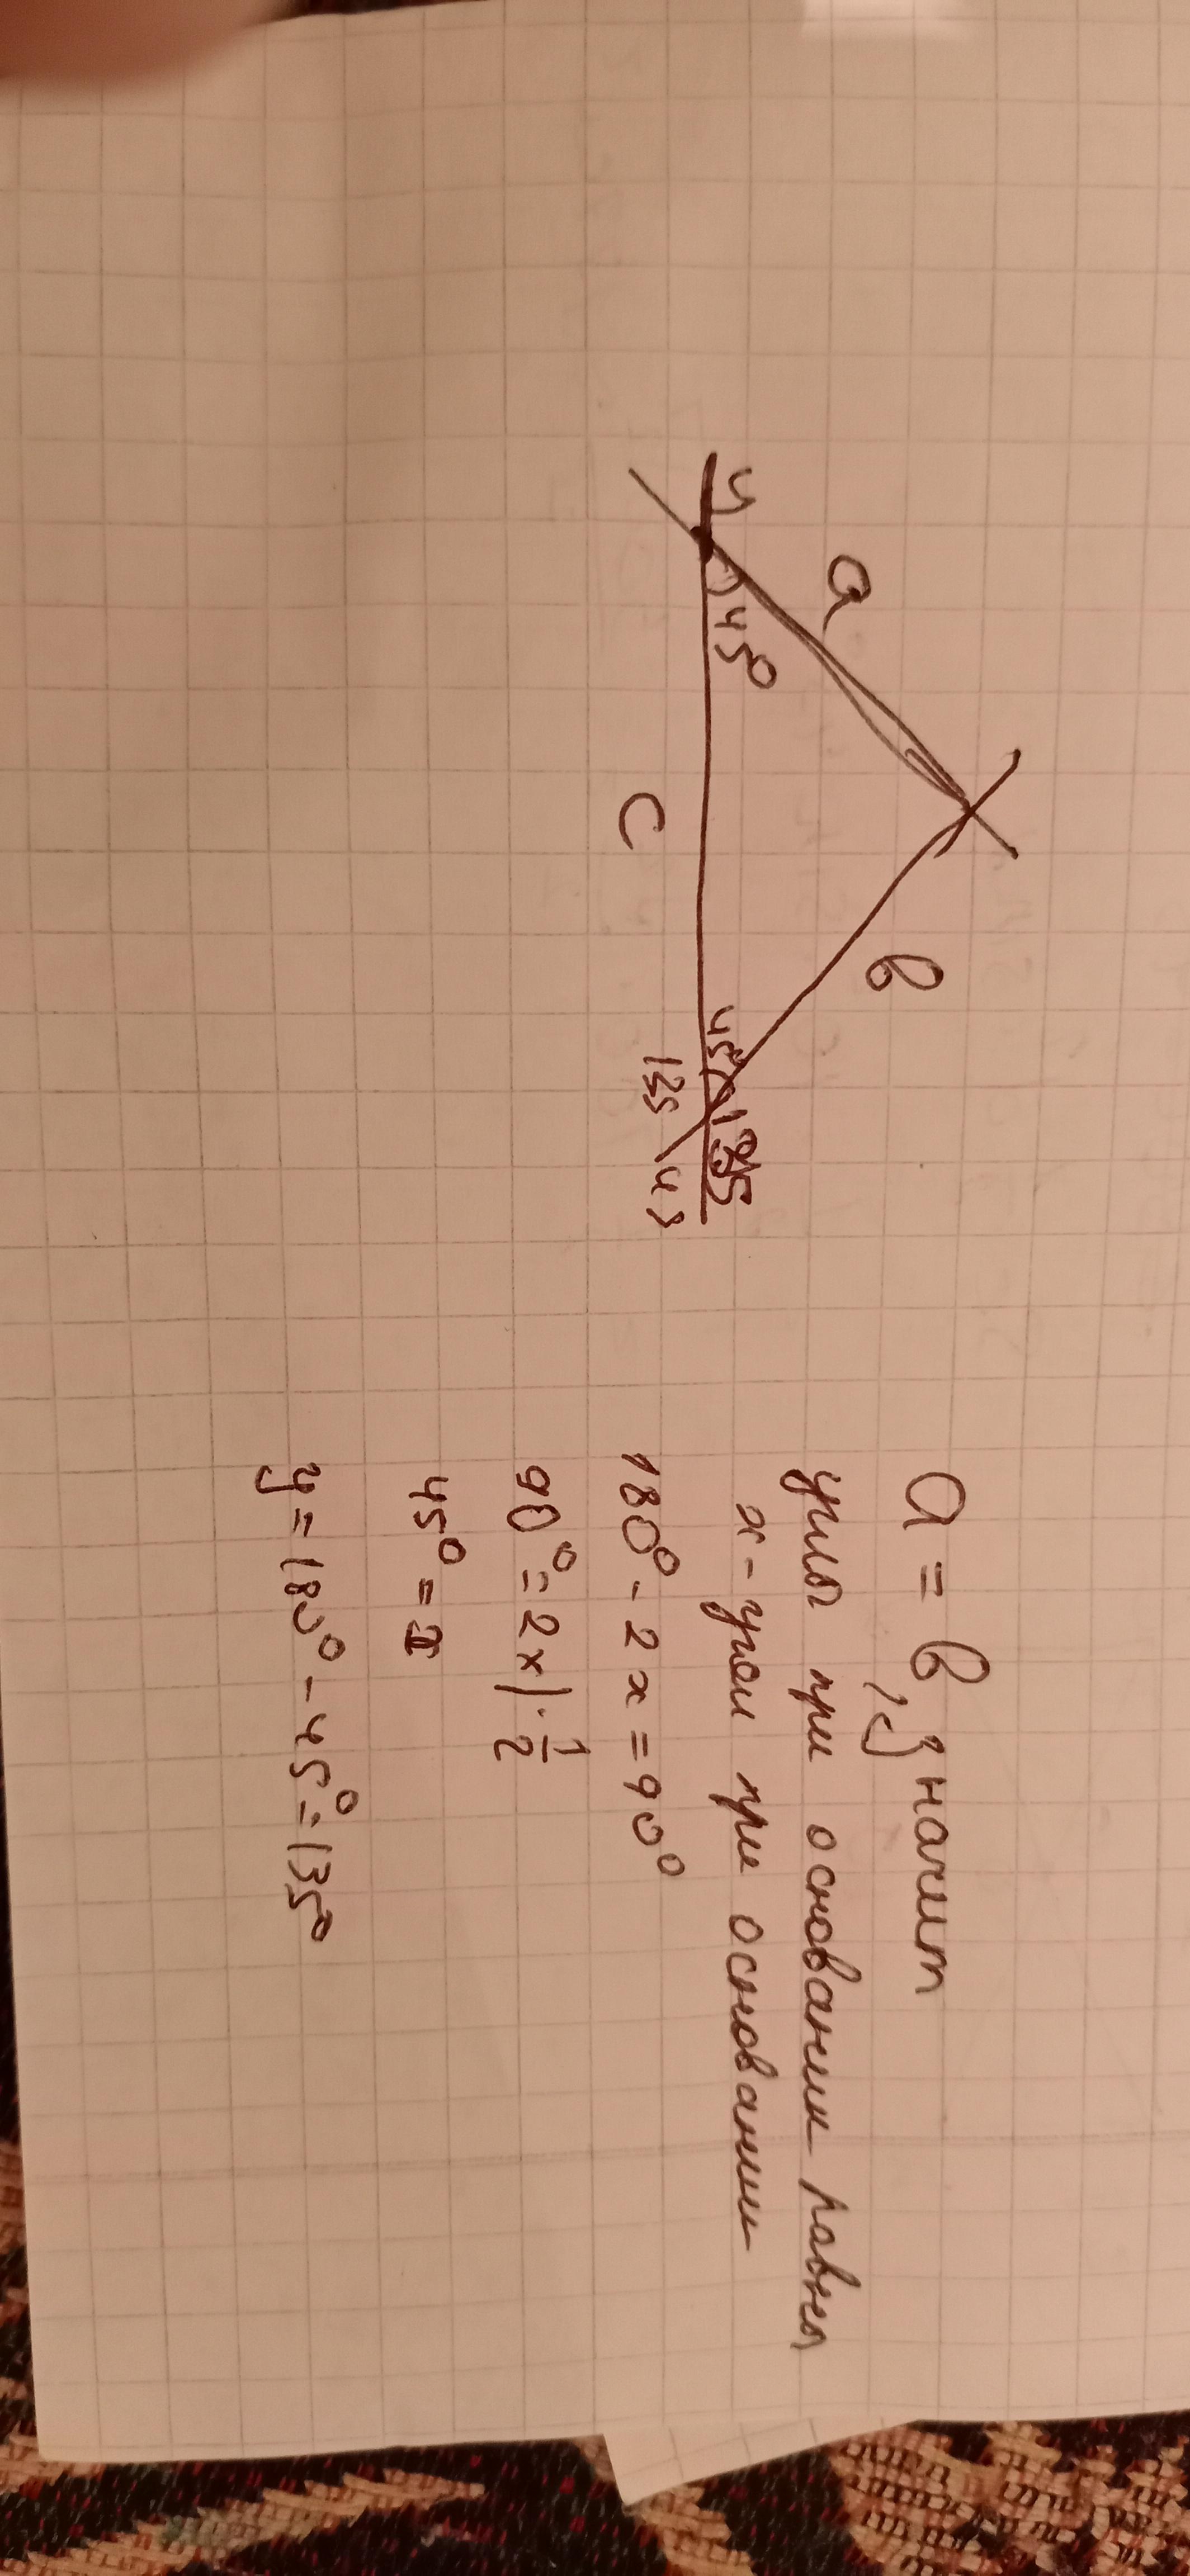 a = в, значит
углы при основании равны
x - угол при основании
180° - 2x = 90°
90° = 2x | · 1/2
45° = x
y = 180° - 45° = 135°
a
в
y
45°
45°
135
135
45
c